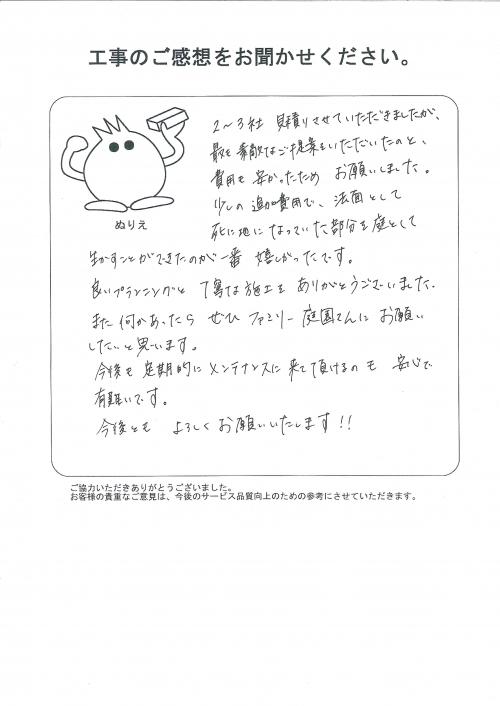 工事のご感想をお聞かせください。
2〜3社 見積りさせていただきましたが、
最も素敵なご提案をいただいたのと、
費用も安かったため お願いしました。
少しの追加費用で、法面として
死に地になっていた部分を庭として
生かすことができたのが一番 嬉しかったです。
良いプランニングと 丁寧な施工を ありがとうございました。
また何かあったら ぜひ ファミリー庭園さんにお願い
したいと思います。
今後も 定期的にメンテナンスに来て頂けるのも 安心で
有難いです。
今後とも よろしくお願いいたします!!
ぬりえ
ご協力いただきありがとうございました。
お客様の貴重なご意見は、今後のサービス品質向上のための参考にさせていただきます。